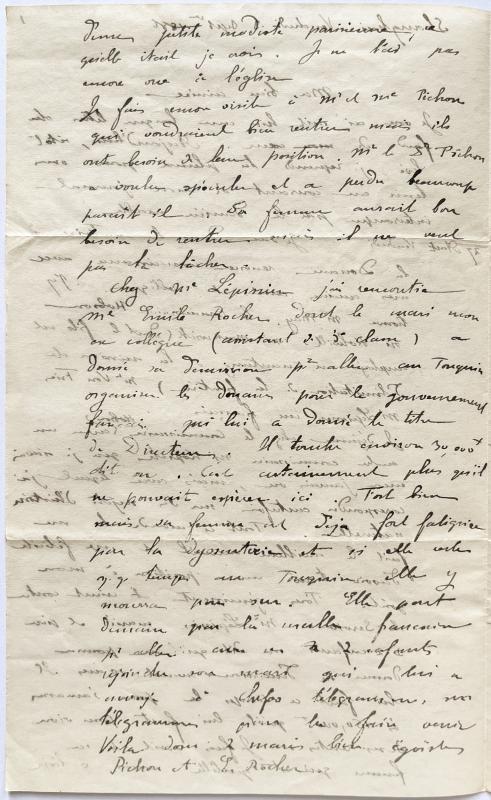 d'une petite modiste parisienne, ce
qu'elle était je crois. Je ne l'ai pas
encore vue à l'église
Je fais encore visite à Mr et Me Pichon
qui voudraient bien rentrer mais ils
ont besoin de leur position. Mr le Dr Pichon
a voulu spéculer et a perdu beaucoup
paraît-il Sa femme aurait bon
besoin de rentrer mais il ne veut
pas la lâcher.
Chez Me Lépissier j'ai rencontré
Me Emile Rocher dont le mari mon
ex collègue (assistant de 3e classe) a
donné sa démission pr aller au Tonquin
organiser les Douanes pour le Gouvernement
français qui lui a donné le titre
de Directeur. Il touche environ 30,000f
dit on. C'est certainement plus qu'il
ne pouvait espérer ici. Tout bien
mais sa femme est déjà fort fatiguée
par la dysenterie et si elle reste
longtemps au Tonquin elle y
mourra pour sûr. Elle part
demain par la malle française
pr aller avec ses 2 enfants
rejoindre son mari qui lui a
envoyé à Chefoo télégrammes sur
télégrammes pour la faire venir
Voilà donc 2 maris bien égoïstes
Pichon et E. Rocher